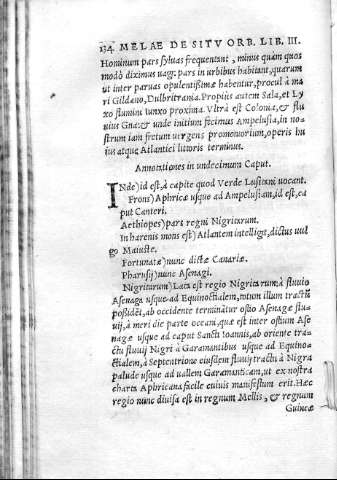 134 MELAE DE SITV ORB. LIB. III.
Hominum pars syluas frequentant, minus quàm quos
modò diximus uagi: pars in urbibus habitant, quarum
ut inter paruas opulentissimæ habentur, procul à ma
ri Gildano, Dulbritrania. Propius autem Sala, et Ly
xo flumini Iunxo proxima. Vltrà est Colonia, & flu
uius Gna: & unde initium fecimus Ampelusia, in no
strum iam fretum uergens promontorium, operis hu
ius atque Atlantici littoris terminus.
Annotationes in undecimum Caput.
INde) id est, à capite quod Verde Lusitani uocant.
Frons) Aphricæ usque ad Ampelusiam, id est, ca
put Canteri.
Aethiopes) pars regni Nigritarum.
In harenis mons est) Atlantem intelligit, dictus uul
go Maiuste.
Fortunatæ) nunc dictæ Canariæ.
Pharusij) nunc Asenagi.
Nigritarum) Lata est regio Nigritarum, à fluuio
Asenaga usque ad Equinoctialem, totum illum tractũ
possidet, ab occidente terminatur ostio Asenagæ flu-
uij, à meri die parte oceani, quæ est inter ostium Ase
nagæ usque ad caput Sancti Ioannis, ab oriente tra-
ctu fluuij Nigri à Garamantibus usque ad Equino-
ctialem, à Septentrione eiusdem fluuij tractu à Nigra
palude usque ad uallem Garamanticam, ut ex nostra
charta Aphricana facile cuiuis manifestum erit. Hæc
regio nunc diuisa est in regnum Mellis, & regnum
Guineæ